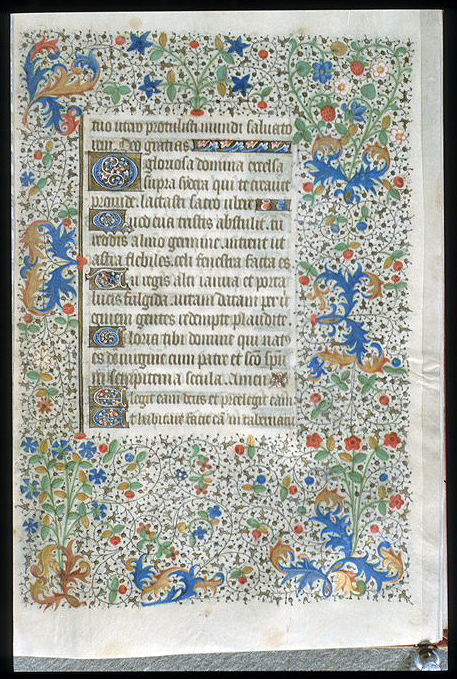 trio utero protulisti mundi saluato
rem. Deo gratias
O gloriosa domina excelsa
supra sydera qui te creauit
prouide lactasti sacro ubere
Quod eua tristis abstulit tu
reddis almo germine intrent ut
astra flebiles celi fenestra facta es
Tu regis alti ianua et porta
lucis fulgida uitam datam per u
ginem gentes redempte plaudite
Gloria tibi domine qui nat9
es de uirgine cum patre et sco spu
in sempiterna secula. Amen
Elegit eam deus et preelegit eam
Et habitare facit ea in tabernac